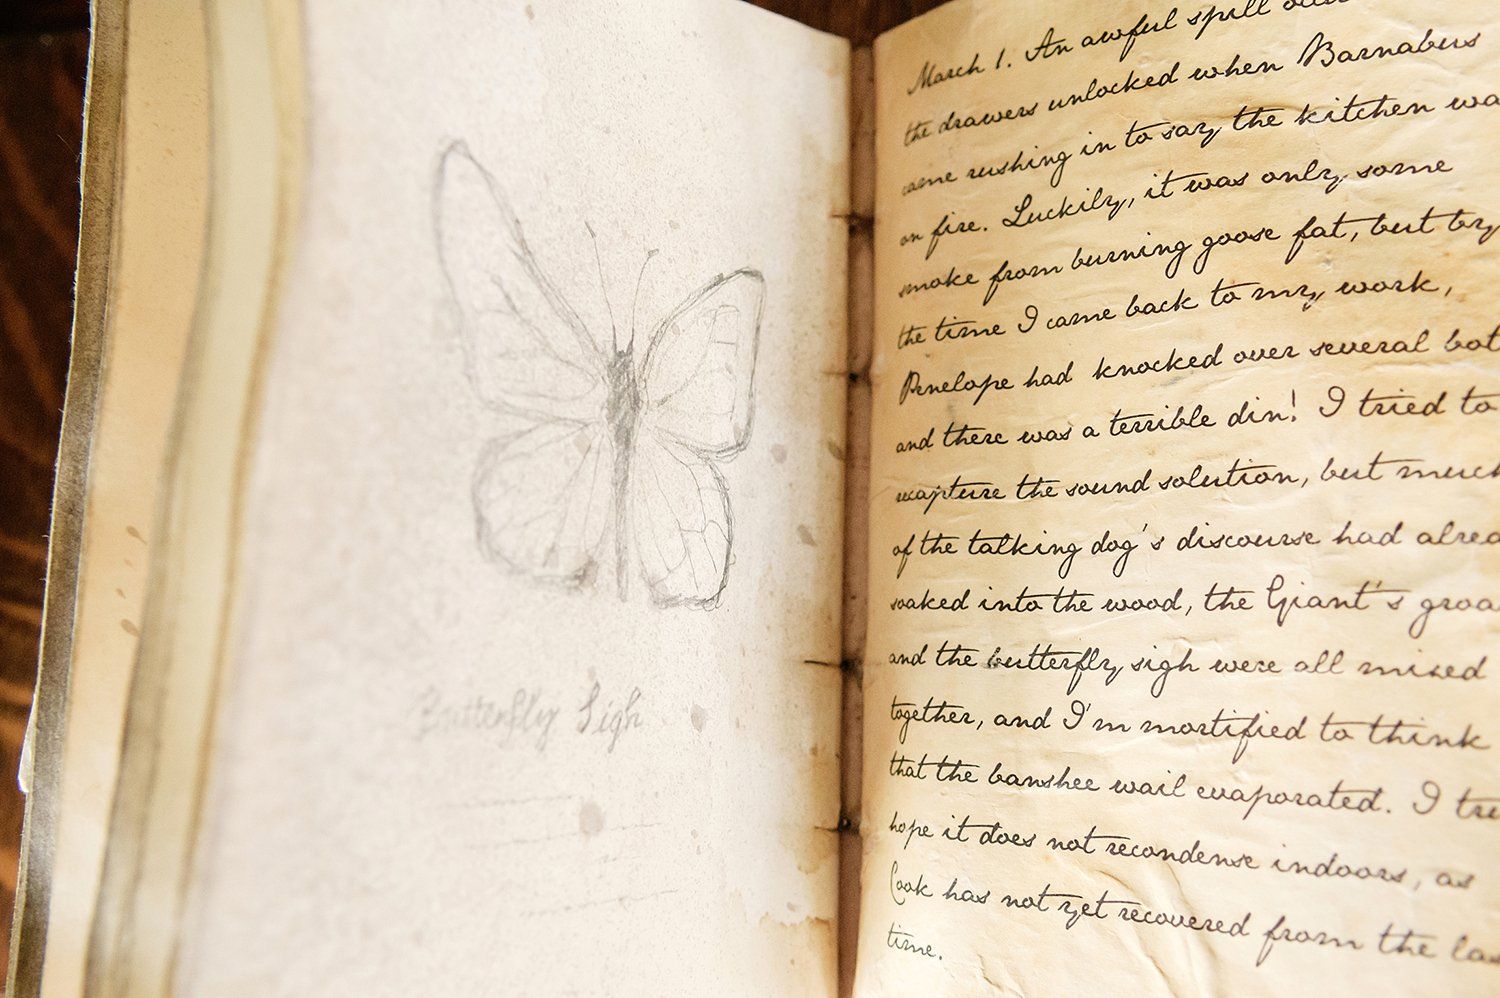 Butterfly Sigh
March 1. An awful spill
the drawers unlocked when Barnabus
came rushing in to say the kitchen wa
on fire. Luckily, it was only some
smoke from burning goose fat, but by
the time I came back to my work,
Penelope had knocked over several bot
and there was a terrible din! I tried to
recapture the sound solution, but much
of the talking dog's discourse had alrea
soaked into the wood, the Giant's groa
and the butterfly sigh were all mixed
together, and I'm mortified to think
that the banshee wail evaporated. I tru
hope it does not recondense indoors, as
Cook has not yet recovered from the las
time.